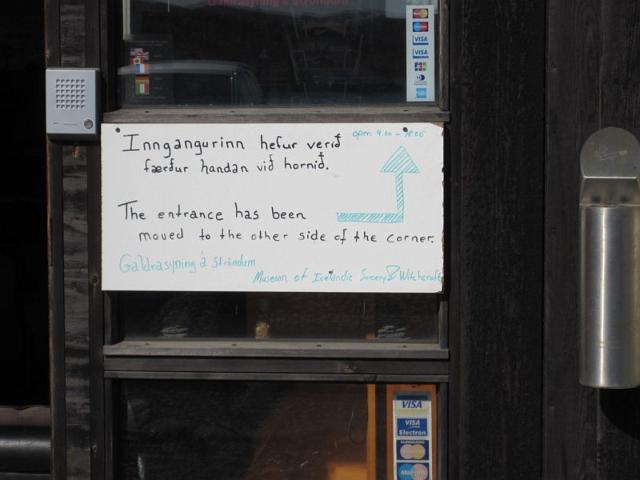 Galdrasýning á Ströndum
VISA
VISA
open 9.00 - 18.00
Inngangurinn hefur verið
færður handan við hornið.
The entrance has been
moved to the other side of the corner.
Galdrasýning á Ströndum
Museum of Icelandic Sorcery & Witchcraft
VISA
VISA
Electron
MasterCard
Maestro